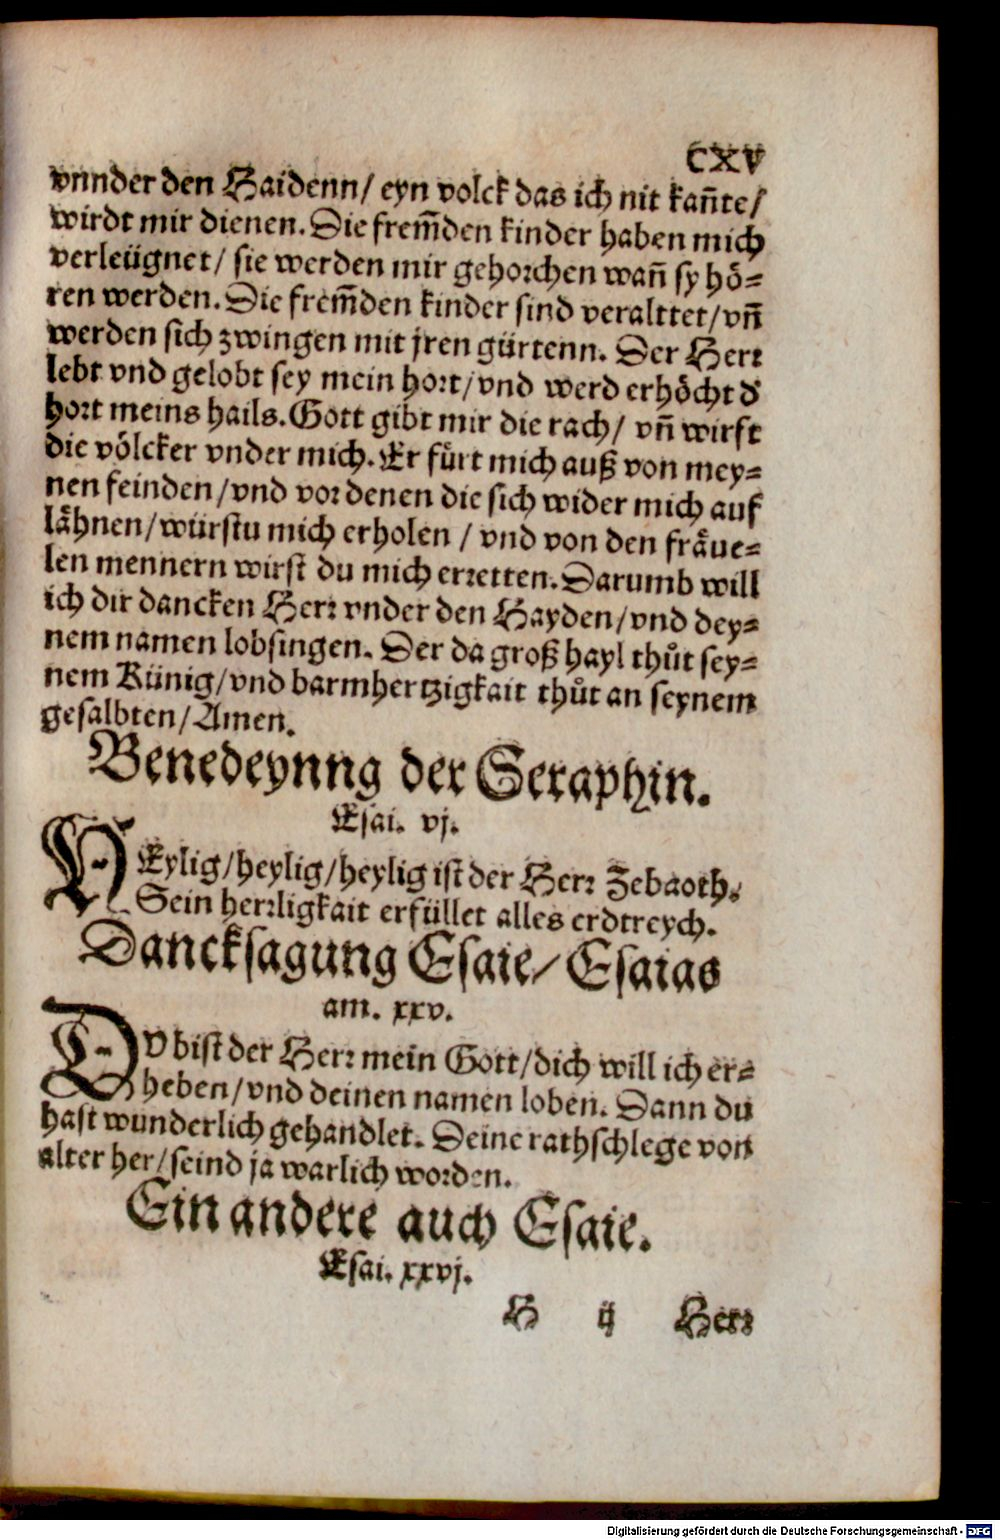 CXV
vnnder den Haidenn/ eyn volck das ich nit kan̄te/
wirdt mir dienen. Die frem̄den kinder haben mich
verleügnet/ sie werden mir gehorchen wan̄ sy hö⸗
ren werden. Die frem̄den kinder sind veralttet/ vn̄
werden sich zwingen mit jren gürtenn. Der Herr
lebt vnd gelobt sey mein hort/ vnd werd erhöcht d͛
hort meins hails. Gott gibt mir die rach/ vn̄ wirft
die völcker vnder mich. Er fu᷑rt mich auß von mey⸗
nen feinden/ vnd vor denen die sich wider mich auf
laͤhnen/ würstu mich erholen / vnd von den fraͤue⸗
len mennern wirst du mich erretten. Darumb will
ich dir dancken Herr vnder den Hayden/ vnd dey⸗
nem namen lobsingen. Der da groß hayl thůt sey⸗
nem Künig/ vnd barmhertzigkait thůt an seynem
gesalbten/ Amen.
Benedeynng der Seraphin.
Esai. vj.
HEylig/ heylig/ heylig ist der Herr Zebaoth.
Sein herrligkait erfüllet alles erdtreych.
Dancksagung Esaie/ Esaias
am. xxv.
DV bist der Herr mein Gott/ dich will ich er⸗
heben/ vnd deinen namen loben. Dann du
hast wunderlich gehandlet. Deine rathschlege von
alter her/ seind ja warlich worden.
Ein andere auch Esaie.
Esai. xxvj.
H ij Herr
Digitalisierung gefördert durch die Deutsche Forschungsgemeinschaft - DFG